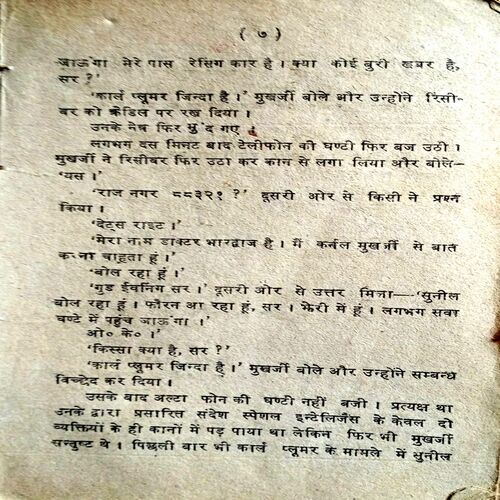 ( ७ )
जाऊंगा मेरे पास रेसिंग कार है । क्या कोई बुरी खबर है,
सर ?'
'कार्ल प्लूमर जिन्दा है ।' मुखर्जी बोले और उन्होंने रिसी-
वर को क्रेडिल पर रख दिया ।
उनके नेत्र फिर मुंद गए ।
लगभग दस मिनट बाद टेलीफोन की घण्टी फिर बज उठी ।
मुखर्जी ने रिसीवर फिर उठा कर कान से लगा लिया और बोले—
'यस ।'
'राज नगर ८८३२१ ?' दूसरी ओर से किसी ने प्रश्न
किया ।
'देट्स राइट ।'
'मेरा नाम डाक्टर भारद्वाज है । मैं कर्नल मुखर्जी से बात
करना चाहता हूं ।'
'बोल रहा हूं ।'
'गुड ईवनिंग सर ।' दूसरी ओर से उत्तर मिला—'सुनील
बोल रहा हूं । फौरन आ रहा हूं, सर । झेरी में हूं । लगभग सवा
घण्टे में पहुंच जाऊंगा ।'
ओ० के० ।'
'किस्सा क्या है, सर ?'
'कार्ल प्लूमर जिन्दा है ।' मुखर्जी बोले और उन्होंने सम्बन्ध
विच्छेद कर दिया ।
उसके बाद अल्टा फोन की घण्टी नहीं बजी । प्रत्यक्ष था
उनके द्वारा प्रसारित संदेश स्पेशल इन्टेलिजेंस के केवल दो
व्यक्तियों के ही कानों में पड़ पाया था लेकिन फिर भी मुखर्जी
सन्तुष्ट थे । पिछली बार भी कार्ल प्लूमर के मामले में सुनील